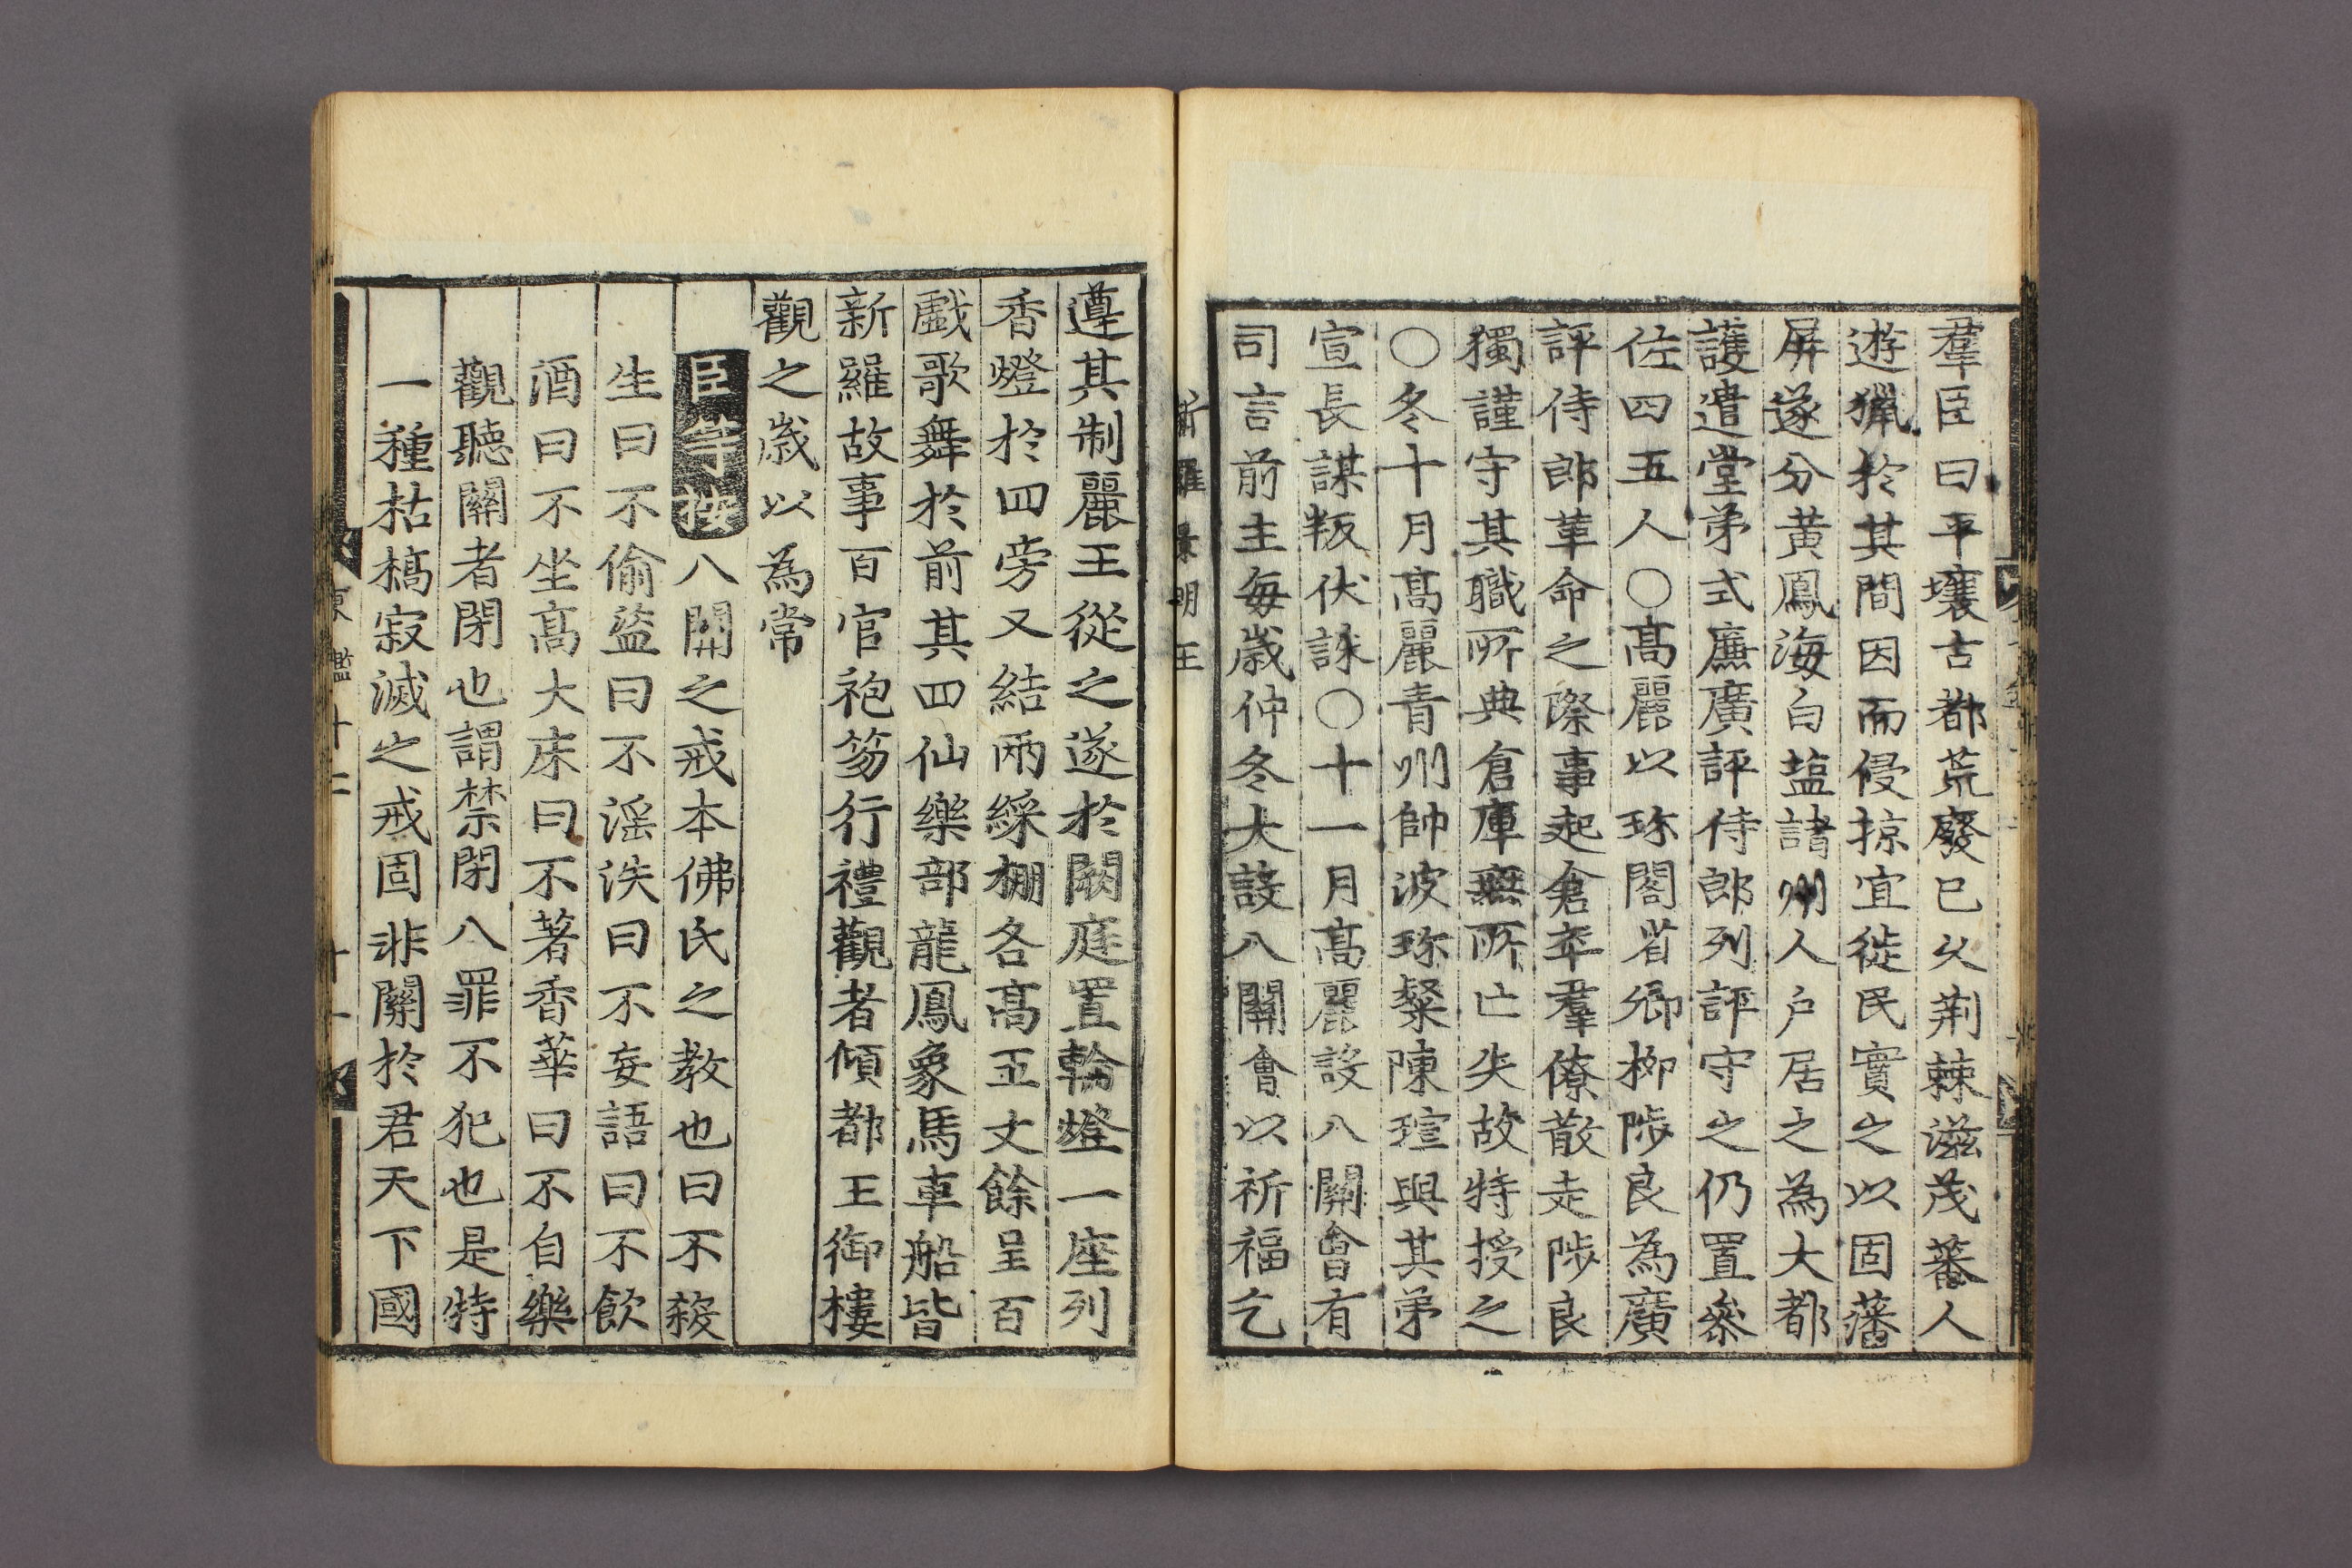 羣臣曰平壤古都荒廢已久荆棘滋茂蕃人
遊獵於其間因而侵掠宜徙民實之以固藩
屏遂分黃鳳海白塩諸州人户居之為大都
護遣堂弟式廉廣評侍郎列評守之仍置叅
佐四五人〇髙麗以珎閣省卿栁陟良為廣
評侍郎革命之際事起倉卒羣僚散走陟良
獨謹守其職所典倉庫無所亡失故特授之
〇冬十月髙麗青州帥波珎粲陳瑄與其弟
宣長謀叛伏誅〇十一月髙麗設八關會有
司言前主每歲仲冬大設八關會以祈福乞
新羅景明王
遵其制麗王從之遂於闕庭置輪燈一座列
香燈於四旁又結兩綵棚各髙五丈餘呈百
戱歌舞於前其四仙樂部龍鳳象馬車船皆
新羅故事百官袍笏行禮觀者傾都王御樓
觀之歲以為常
臣等按八關之戒本佛氏之教也曰不殺
生曰不偷盜曰不淫泆曰不妄語曰不飲
酒曰不坐髙大床曰不著香華曰不自樂
觀聽關者閉也謂禁閉八罪不犯也是特
一種枯槁寂滅之戒固非關於君天下國
東鑑十二 十一